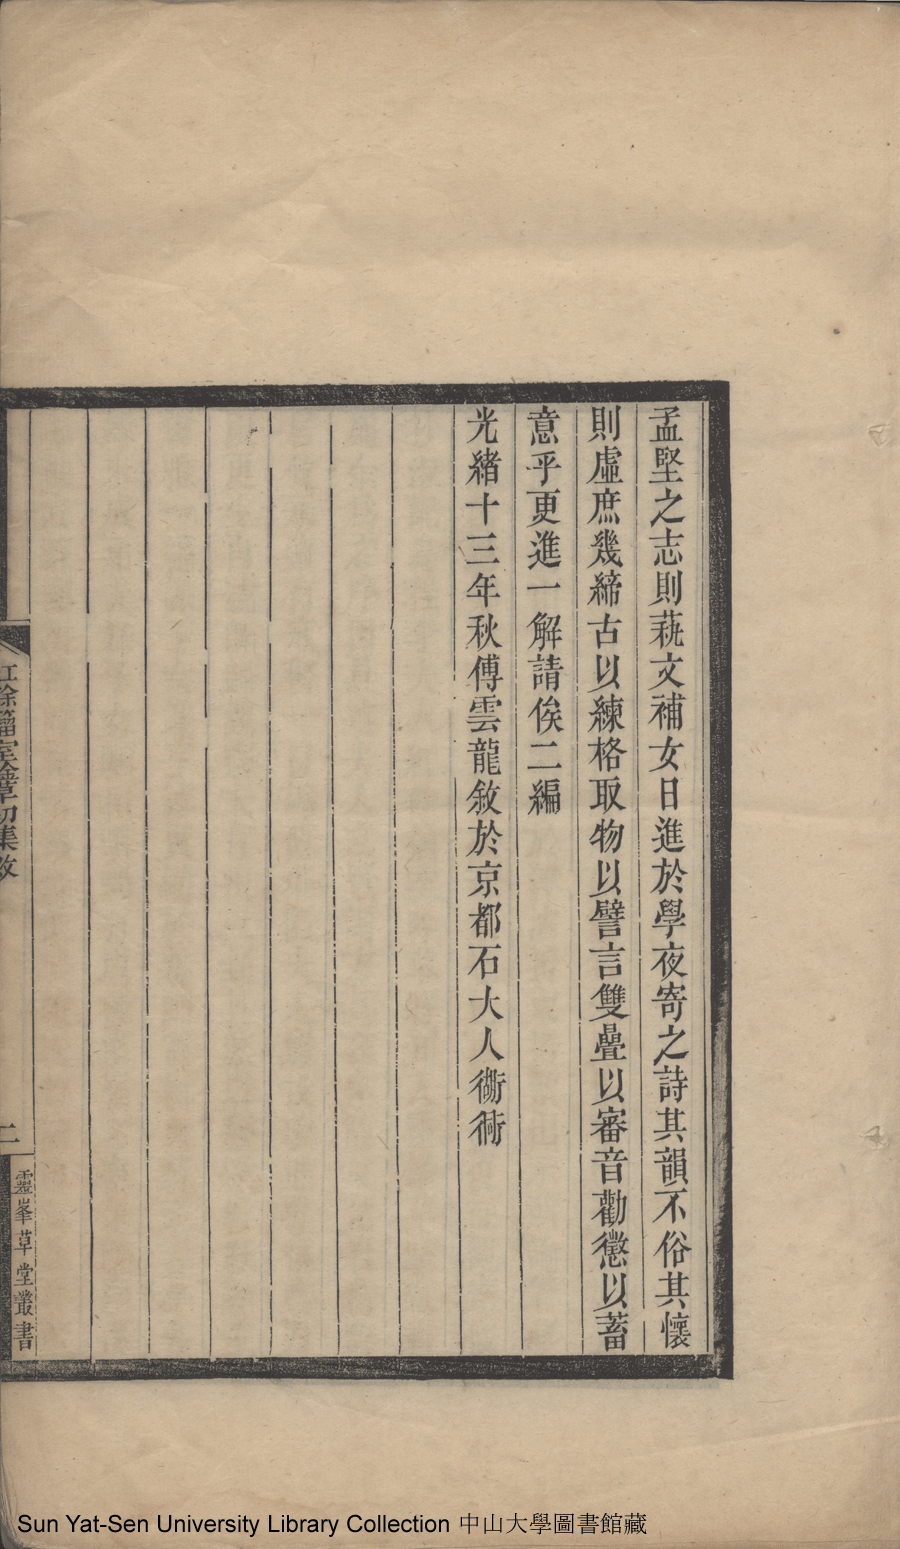 孟堅之志則蓺文補女日進於學夜寄之詩其韻不俗其懷
則虛庶幾締古以練格取物以譬言雙疊以審音勸懲以蓄
意乎更進一解請俟二編
光緒十三年秋傅雲龍敘於京都石大人衚衕
紅餘籀室唫草初集敘
二
靈峯草堂叢書
Sun Yat-Sen University Library Collection 中山大學圖書館藏